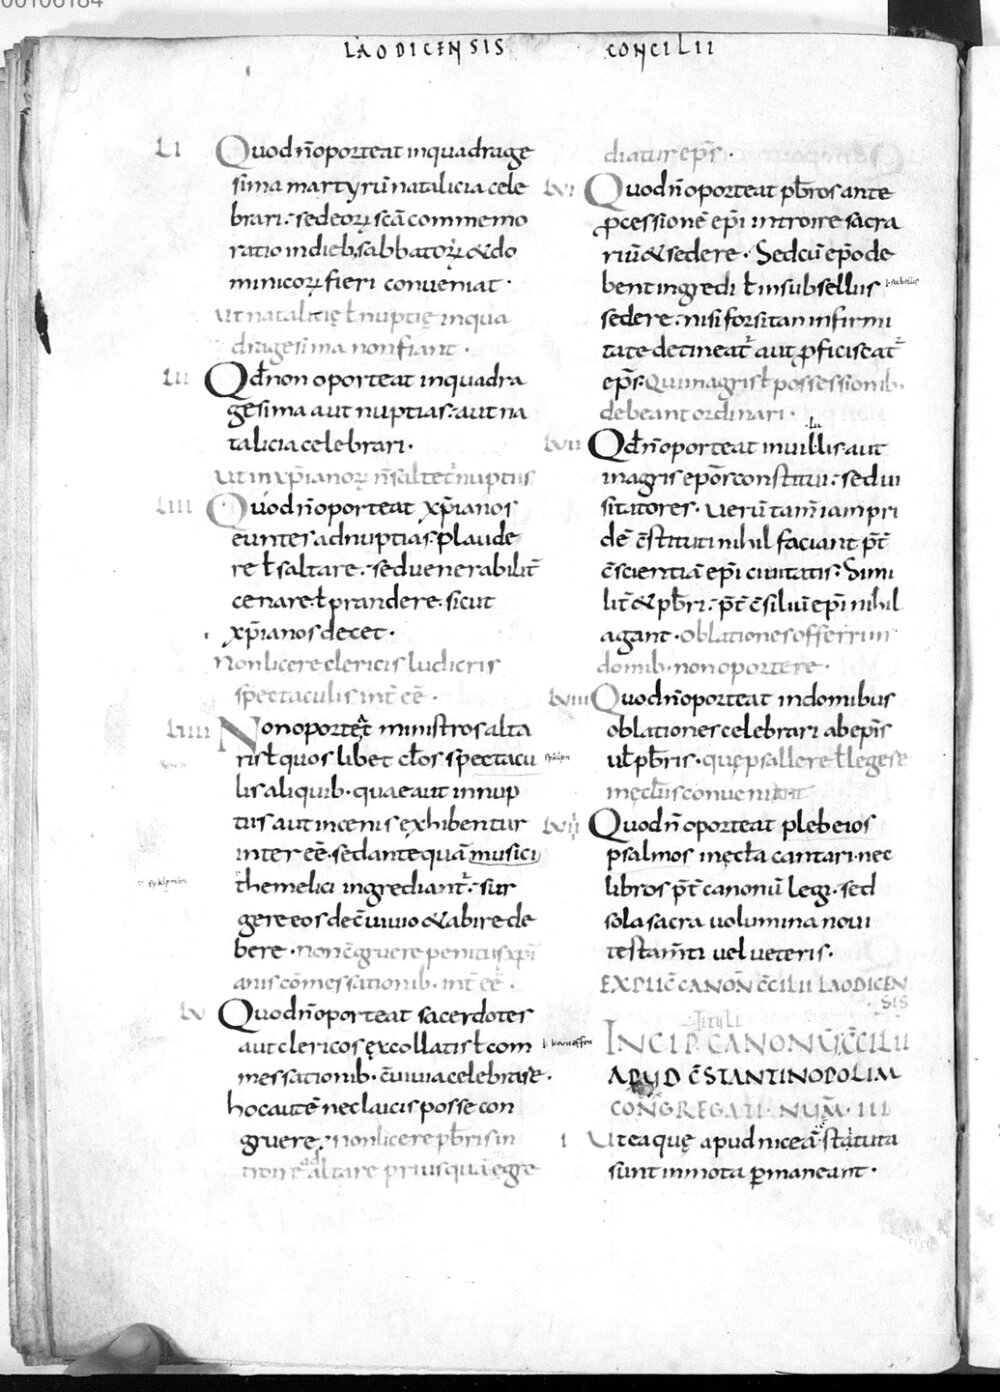 00106184
LAODICENSIS CONCILII
LI Quod n̄ oporteat in quadrage
sima martyrū natalicia cele
brari: sed eorꝝ scā commemo
ratio in dieb; sabbatorꝝ & do
minicorꝝ fieri conveniat·
ut natalitię ł nuptię in qua
dragesima non fiant·
LII Qđ non oporteat in quadra
gesima aut nuptias: aut na
talicia celebrari·
Ut in xp̄ianorꝝ n̄ saltet̄ nuptiis
LIII Quod n̄ oporteat xp̄ianos
euntes ad nuptias: plaude
re ł saltare: sed venerabilit̄
cenare ł prandere sicut
xp̄ianos decet·
Non licere clericis ludicris
spectaculis int̄ eē·
LIIII Non oporteat ministros alta
ris ł quos libet cłos spectacu
lis aliquib· quae aut in nup
tiis aut in cenis exhibentur
inter eē· sed ante quā musici
themelici ingrediant̄: sur
gere eos de c̄vivio & abire de
bere· non c̄gruere penitus xp̄i
anis cōmessationib· int̄ eē·
LV Quod n̄ oporteat sacerdotes
aut clericos ex collatis ł com
messationib· c̄vivia celebrare·
hoc autē nec laicis posse con
gruere· non licere pb̄ris in
troire ad altare priusquā egre
diatur ep̄s·
LVI Quod n̄ oporteat pb̄ros ante
ꝓcessionē ep̄i introire sacra
riū & sedere· Sed cū ep̄o de
bent ingredi ł in subselliis
sedere: nisi forsitan infirmi
tate detineat̄ aut ꝓficiscat̄
ep̄s: Qui in agris ł possessionib·
debeant ordinari·
LVII Qđ n̄ oporteat in villis aut
in agris ep̄os constitui: sed vi
sitatores· verū tam̄ iam pri
dē c̄stituti nihil faciant p̄t
c̄scientiā ep̄i civitatis: Simi
lit̄ & pb̄ri: p̄t c̄siliū ep̄i nihil
agant· Oblationes offerri in
domib· non oportere·
LVIII Quod n̄ oporteat in domibus
oblationes celebrari ab ep̄is
vł pb̄ris· que psallere ł legere
in ecł̄iis conveniant
LVIIII Quod n̄ oporteat plebeios
psalmos in ecła cantari· nec
libros p̄t canonū legi· sed
sola sacra volumina novi
testam̄ti vel veteris·
EXPLIC̄ CANON̄ C̄CILII LAODICEN
SIS
TITULI
INCIP̄ CANONŪ C̄CILII
APUD C̄STANTINOPOLIM
CONGREGATI· NUM̄· III
I Ut ea quę apud niceā statuta
sunt inmota ꝑmaneant·